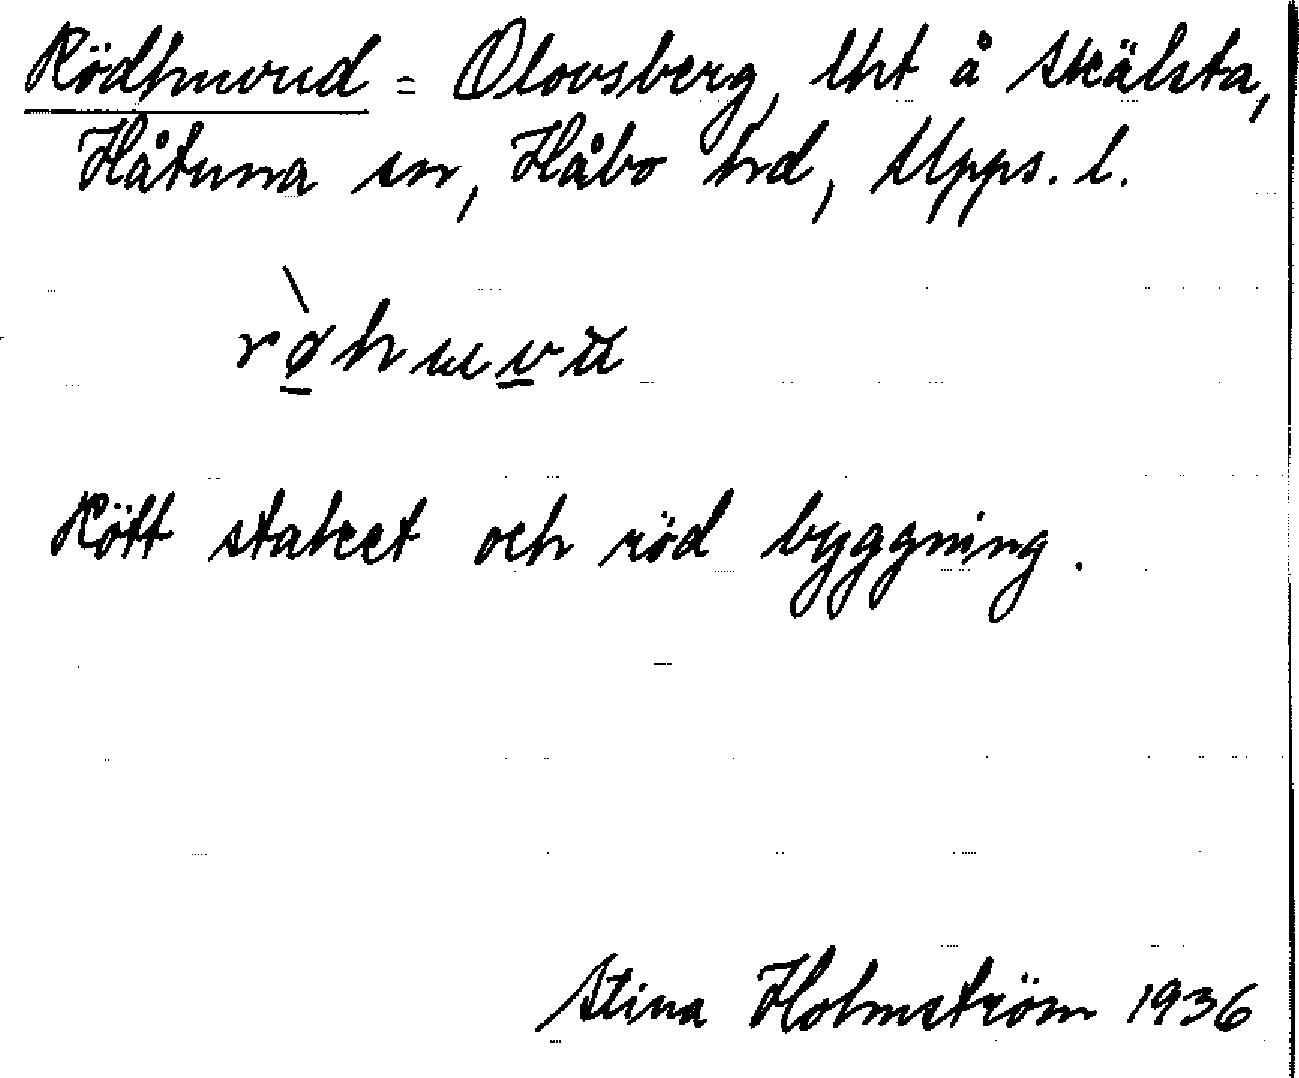 Rödhuvud = Olovsberg, lht å Skälsta,
Håtuna sn, Håbo hrd, Upps. l.
Rött staket och röd byggning.
Stina Holmström 1936